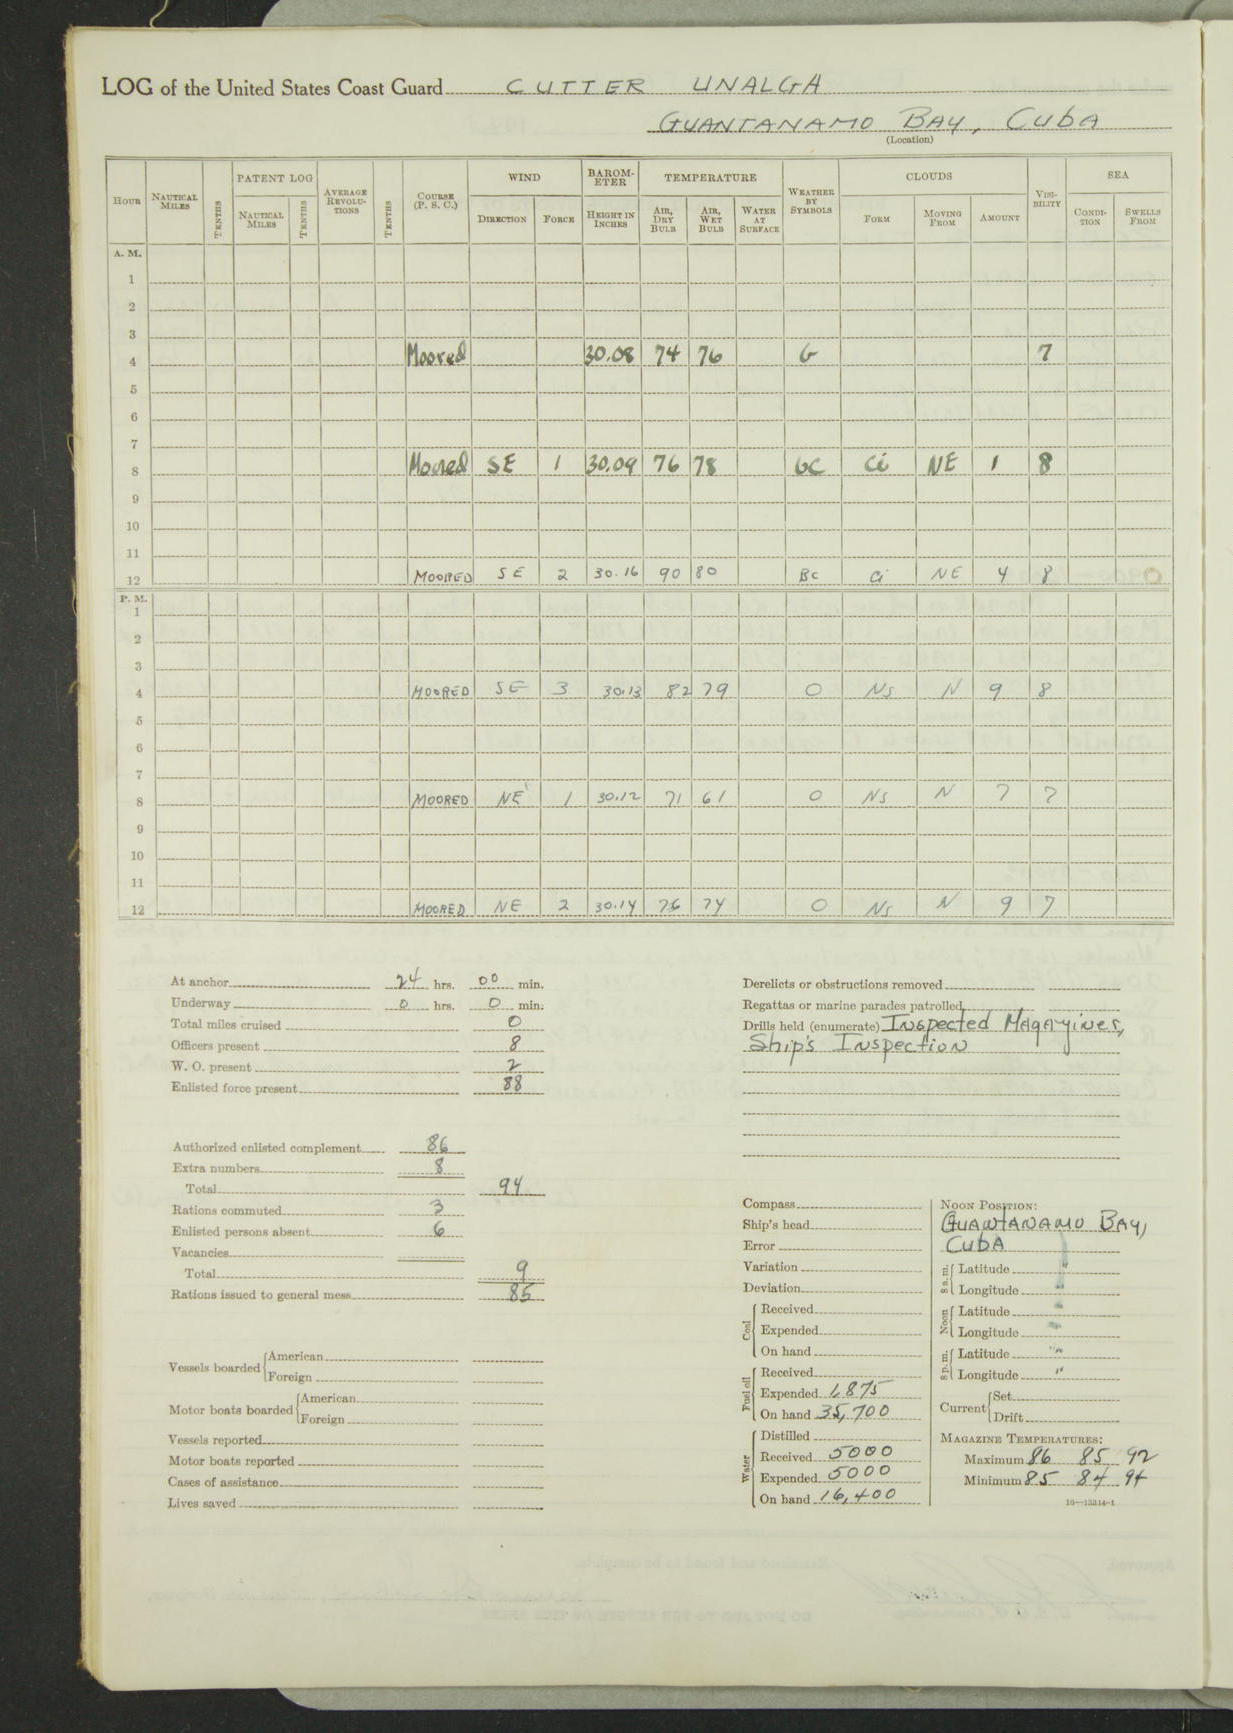 LOG of the United States Coast Guard CUTTER UNALGA
GUANTANAMO BAY, CUBA
(Location)
HOUR NAUTICAL MILES TENTHS PATENT LOG NAUTICAL MILES TENTHS AVERAGE REVOLUTIONS TENTHS COURSE (P. S. C.) WIND DIRECTION FORCE BAROMETER HEIGHT IN INCHES TEMPERATURE AIR, DRY BULB AIR, WET BULB WATER AT SURFACE WEATHER BY SYMBOLS CLOUDS FORM MOVING FROM AMOUNT VISIBILITY SEA CONDITION SWELLS FROM
A. M.
1
2
3
4 Moored 30.08 74 76 7
5
6
7
8 Moored SE 1 30.09 76 78 bC Ci NE 1 8
9
10
11
12 MOORED SE 2 30.16 90 80 Bc Ci NE 4 8
P. M.
1
2
3
4 MOORED SE 3 30.13 82 79 O Ns N 9 8
5
6
7
8 MOORED NE 1 30.12 71 61 O Ns N 7 7
9
10
11
12 MOORED NE 2 30.14 76 74 O Ns N 9 7
At anchor 24 hrs. 00 min.
Underway 0 hrs. 0 min.
Total miles cruised 0
Officers present 8
W. O. present 2
Enlisted force present 88
Authorized enlisted complement 86
Extra numbers 8
Total 94
Rations commuted 3
Enlisted persons absent 6
Vacancies
Total 9
Rations issued to general mess 85
Vessels boarded American
Foreign
Motor boats boarded American
Foreign
Vessels reported
Motor boats reported
Cases of assistance
Lives saved
Derelicts or obstructions removed
Regattas or marine parades patrolled
Drills held (enumerate) Inspected Magazines,
Ship's Inspection
Compass
Ship's head
Error
Variation
Deviation
Coal Received
Expended
On hand
Fuel oil Received
Expended 1,875
On hand 35,700
Water Distilled
Received 5000
Expended 5000
On hand 16,400
NOON POSITION:
GUANTANAMO BAY,
CUBA
8 a.m. Latitude "
Longitude "
Noon Latitude "
Longitude "
8 p.m. Latitude "
Longitude "
Current Set
Drift
MAGAZINE TEMPERATURES:
Maximum 86 85 92
Minimum 85 84 94
16—13314-1